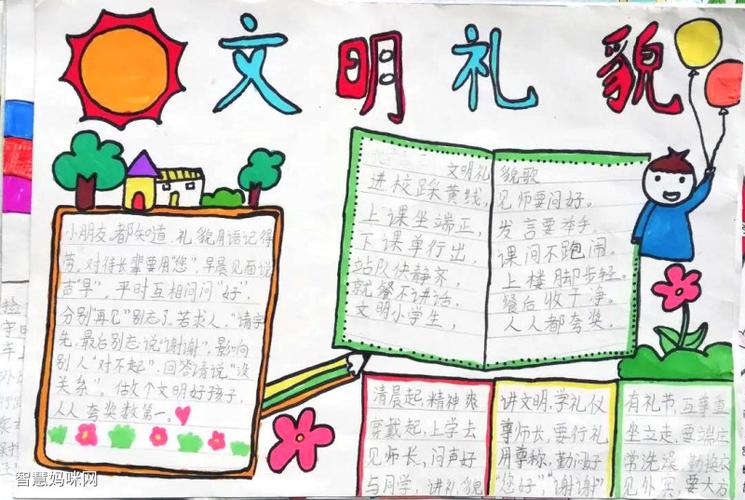 文明礼貌
小朋友,都知道,礼貌用语记得
劳,对待长辈要用"您",早晨见面说
声"早",平时互相问问"好",
分别"再见"别忘了,若求人,"请"字
先,最后别忘说"谢谢",影响
别人"对不起",回答请说"没
关系",做个文明好孩子,
人人夸奖数第一。
文明礼
进校踩黄线,
上课坐端正,
下课单行出,
站队快静齐,
就餐不讲话,
文明小学生,
貌歌
见师要问好。
发言要举手。
课间不跑闹。
上楼脚步轻。
餐后收干净。
人人都夸奖。
清晨起,精神爽
穿戴起,上学去
见师长,问声好
与同学,讲礼貌
讲文明,学礼仪
尊师长,要行礼
用尊称,勤问好
"您好""谢谢"
有礼节,互尊重
坐立走,要端庄
常洗澡,勤换衣
见外宾,要大方
智慧妈咪网